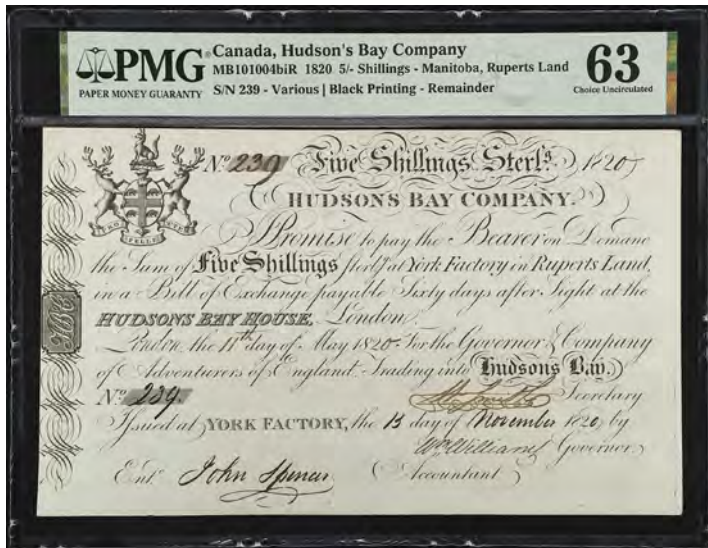 PMG
PAPER MONEY GUARANTY
Canada, Hudson's Bay Company
MB101004biR 1820 5/- Shillings - Manitoba, Ruperts Land
S/N 239 - Various | Black Printing - Remainder
63
Choice Uncirculated
Nº 239 Five Shillings Sterlg. 1820
HUDSONS BAY COMPANY.
PRO PELLE CUTEM
Promise to pay the Bearer on Demand
the Sum of Five Shillings sterlg. at York Factory in Ruperts Land,
in a Bill of Exchange payable Sixty days after Sight at the
HUDSONS BAY HOUSE, London.
HBC
London, the 11th day of May 1820. For the Governor & Company
of Adventurers of England Trading into Hudsons Bay.
Nº 239. Secretary
Issued at YORK FACTORY, the 13 day of November 1820 by
Wm Williams Governor
Entd. John Spencer Accountant